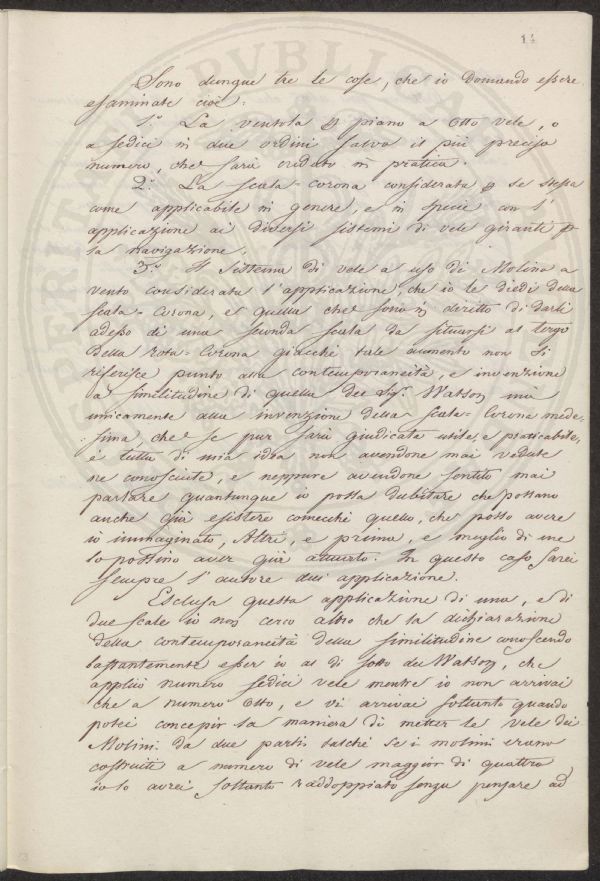 14
Sono dunque tre le cose, che io domando essere
esaminate cioè:
1.° La ventola p piano a otto vele, o
a sedici in due ordini salvo il più preciso
numero, che sarà creduto in pratica.
2.° La scala-corona considerata p se stessa
come applicabile in genere, e in specie con l'
applicazione ai diversi sistemi di vele giranti p
la navigazione.
3.° Il Sistema di vele a uso di Molino a
vento considerata l'applicazione, che io le diedi della
scala-Corona, e quella che sono in diritto di darli
adesso di una seconda scala da situarsi al tergo
della rota-Corona giacchè tale aumento non si
riferisce punto alla contemporaneità, e invenzione
a similitudine di quella del Sig.r Watson mà
unicamente alla invenzione della scala-Corona mede-
sima, che se pur sarà giudicata utile, e praticabile,
è tutta di mia idea non avendone mai vedute
ne conosciute, e neppure avendone sentito mai
parlare quantunque io possa dubitare che possano
anche già esistere comecchè quello, che posso avere
io immaginato, Altri, e prima, e meglio di me
lo possino aver già attuato. In questo caso sarei
sempre l'autore dell'applicazione.
Esclusa questa applicazione di una, e di
due scale io non cerco altro che la dichiarazione
della contemporaneità della similitudine conoscendo
bastantemente esser io al di sotto del Watson, che
applicò numero sedici vele mentre io non arrivai
che a numero otto, e vi arrivai soltanto quando
potei concepir la maniera di metter le vele dei
Molini da due parti talchè se i molini erano
costruiti a numero di vele maggior di quattro
io lo avrei soltanto raddoppiato senza pensare ad